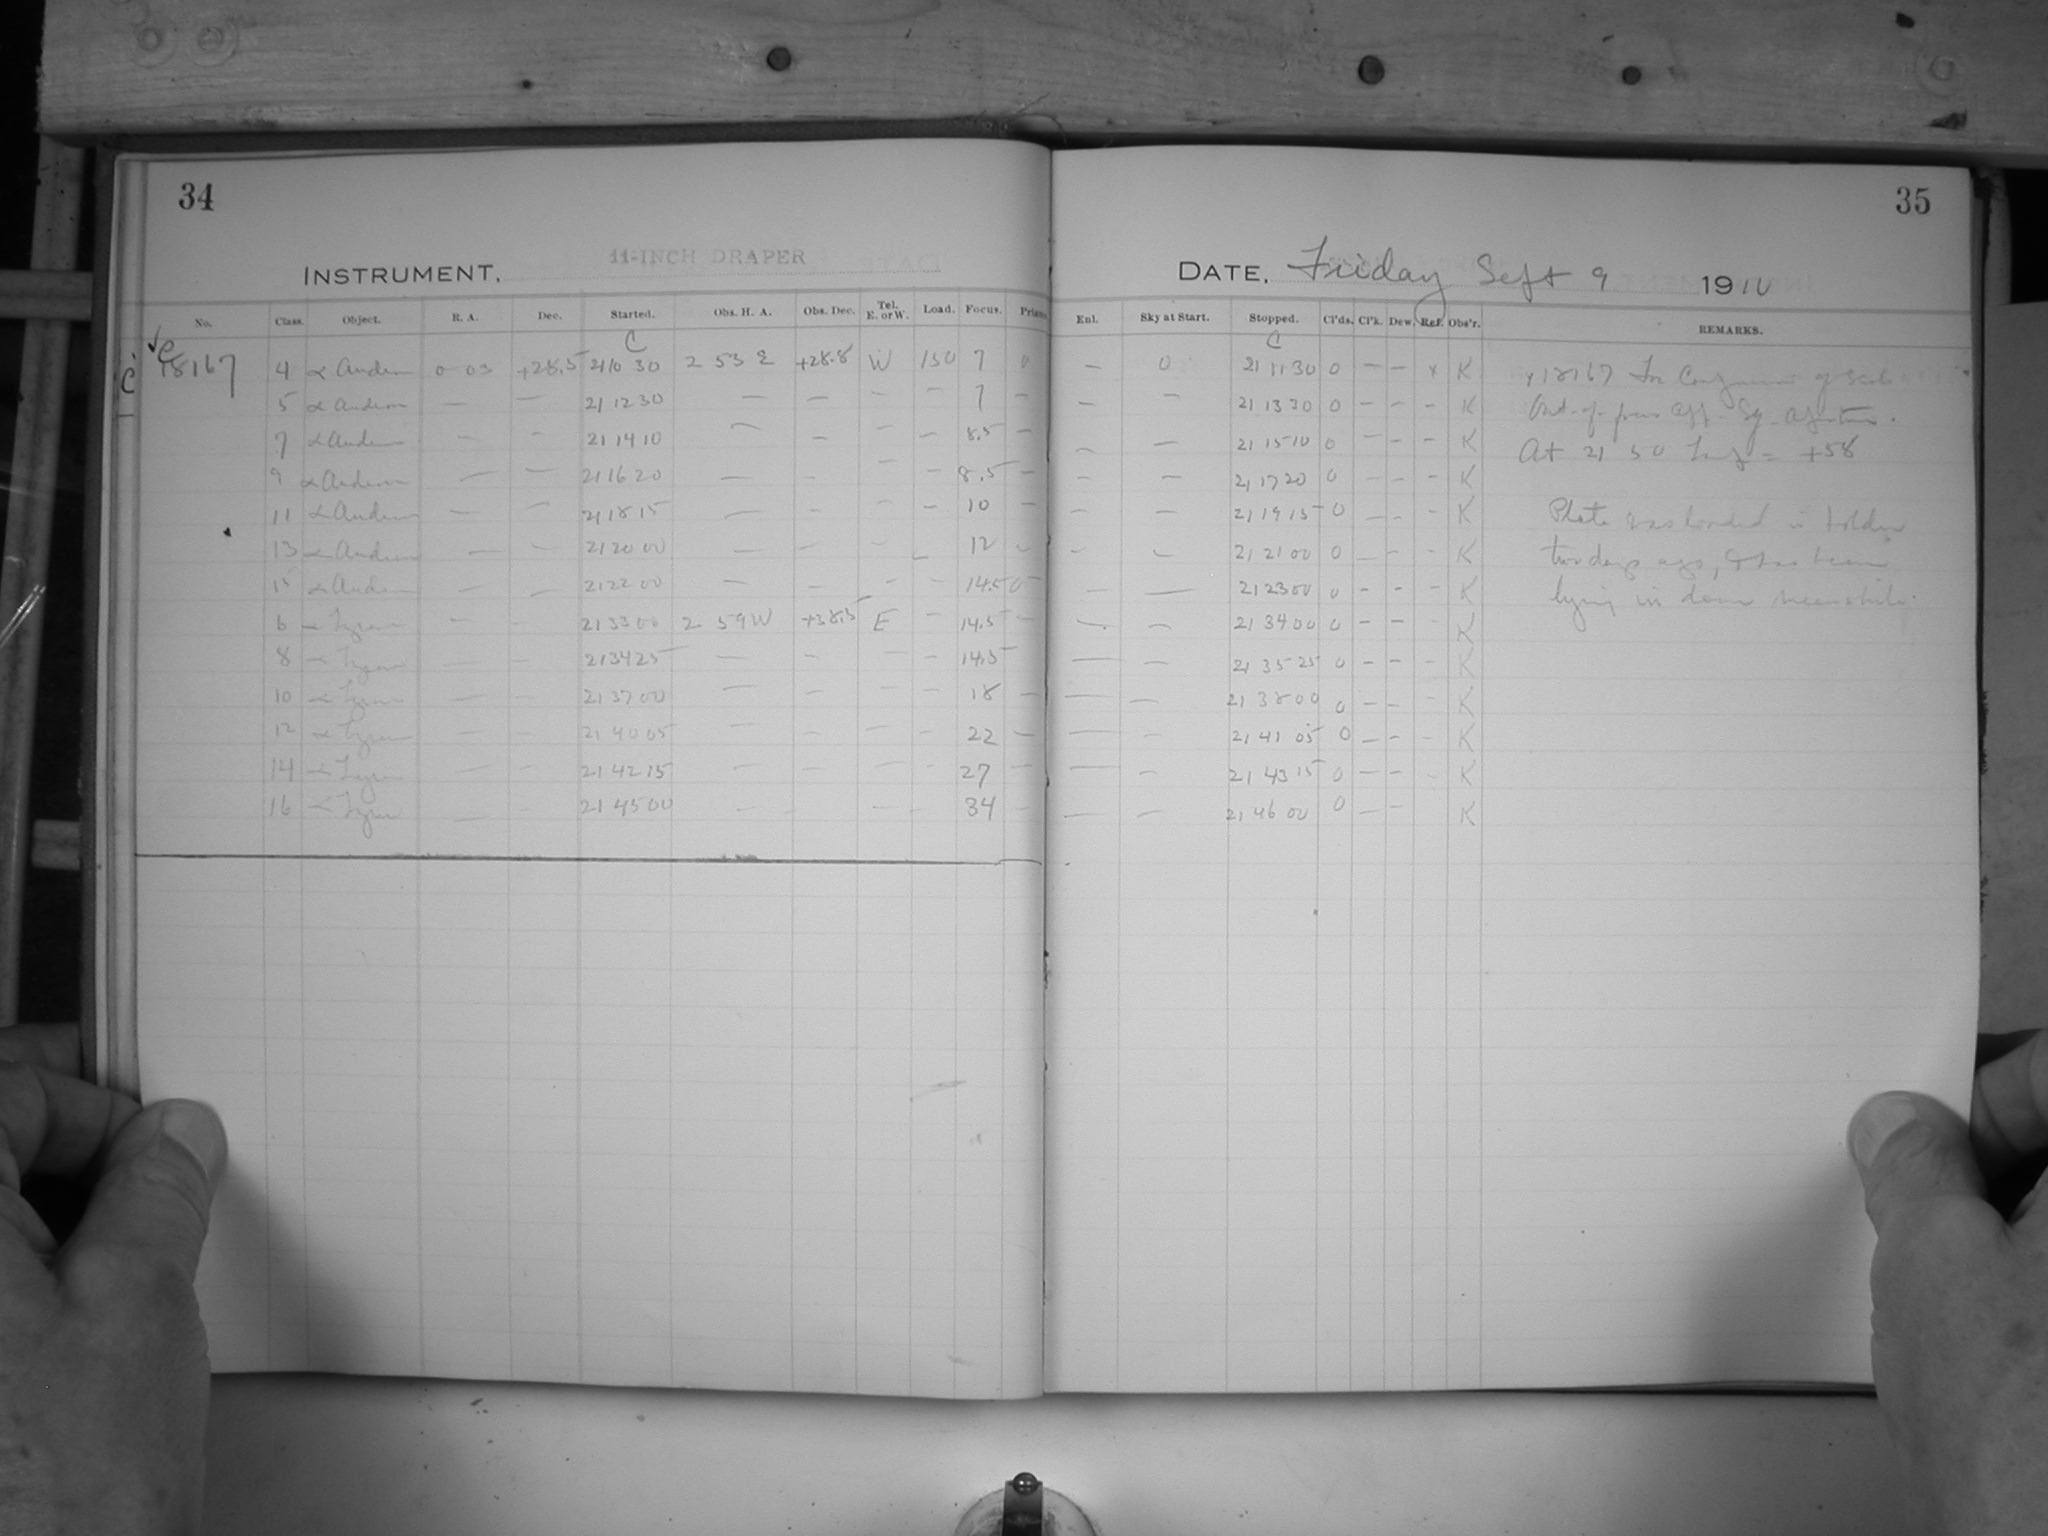 34
INSTRUMENT. 11-INCH DRAPER
No. Class. Object. R. A. Dec. Started. Obs. H. A. Obs. Dec. Tel. E. or W. Load. Focus. Prism
C
C 18167 4 α Androm 0 03 +28.5 21 10 30 2 53 E +28.8 W 150 7 0
5 α Androm — — 21 12 30 — — — — 7 —
7 α Androm — — 21 14 10 — — — — 8.5 —
9 α Androm — — 21 16 20 — — — — 8.5 —
11 α Androm — — 21 18 15 — — — — 10 —
13 α Androm — — 21 20 00 — — — — 12 —
15 α Androm — — 21 22 00 — — — — 14.5
6 α Lyrae — — 21 33 00 2 59 W +38.5 E — 14.5 —
8 α Lyrae — — 21 34 25 — — — — 14.5
10 α Lyrae — — 21 37 00 — — — — 18 —
12 α Lyrae — — 21 40 05 — — — — 22 —
14 α Lyrae — — 21 42 15 — — — — 27 —
16 α Lyrae — — 21 45 00 — — — — 34 —
35
DATE. Friday Sept 9 1910
Enl. Sky at Start. Stopped. Cl'ds. Cl'k. Dew. Ref. Obs'r. REMARKS.
C
— 0 21 11 30 0 — — x K x 18167 For
— 21 13 30 0 — — — K Out-of-focus App. Sq.
— — 21 15 10 0 — — — K At 21 50 = +58
— — 21 17 20 0 — — — K
— — 21 19 15 0 — — — K Plate was loaded in holder
— — 21 21 00 0 — — — K two days ago, & has been
— — 21 23 00 0 — — — K lying in dome meanwhile.
— — 21 34 00 0 — — — K
— — 21 35 25 0 — — — K
— — 21 38 00 0 — — — K
— — 21 41 05 0 — — — K
— — 21 43 15 0 — — — K
— — 21 46 00 0 — — K